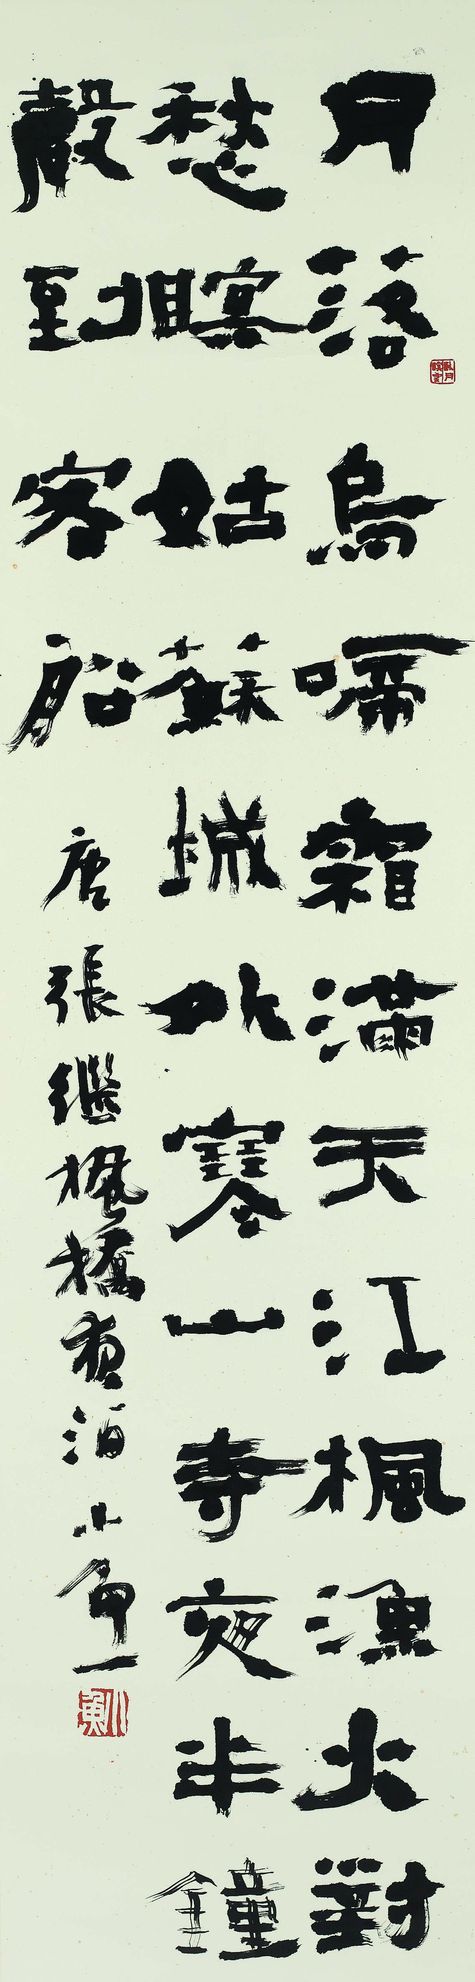 月落烏啼霜滿天江楓漁火對
愁瞑姑蘇城外寒山寺夜半鐘
聲到客船 唐張繼楓橋夜泊 小魚
小魚